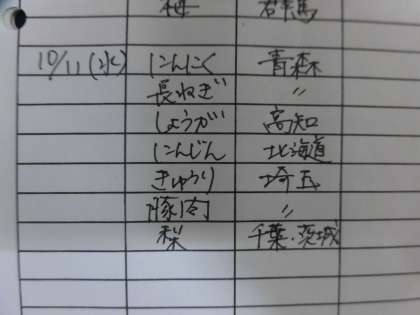 梅 群馬
10/11(水) にんにく 青森
長ねぎ 〃
しょうが 高知
にんじん 北海道
きゅうり 埼玉
豚肉 〃
梨 千葉・茨城